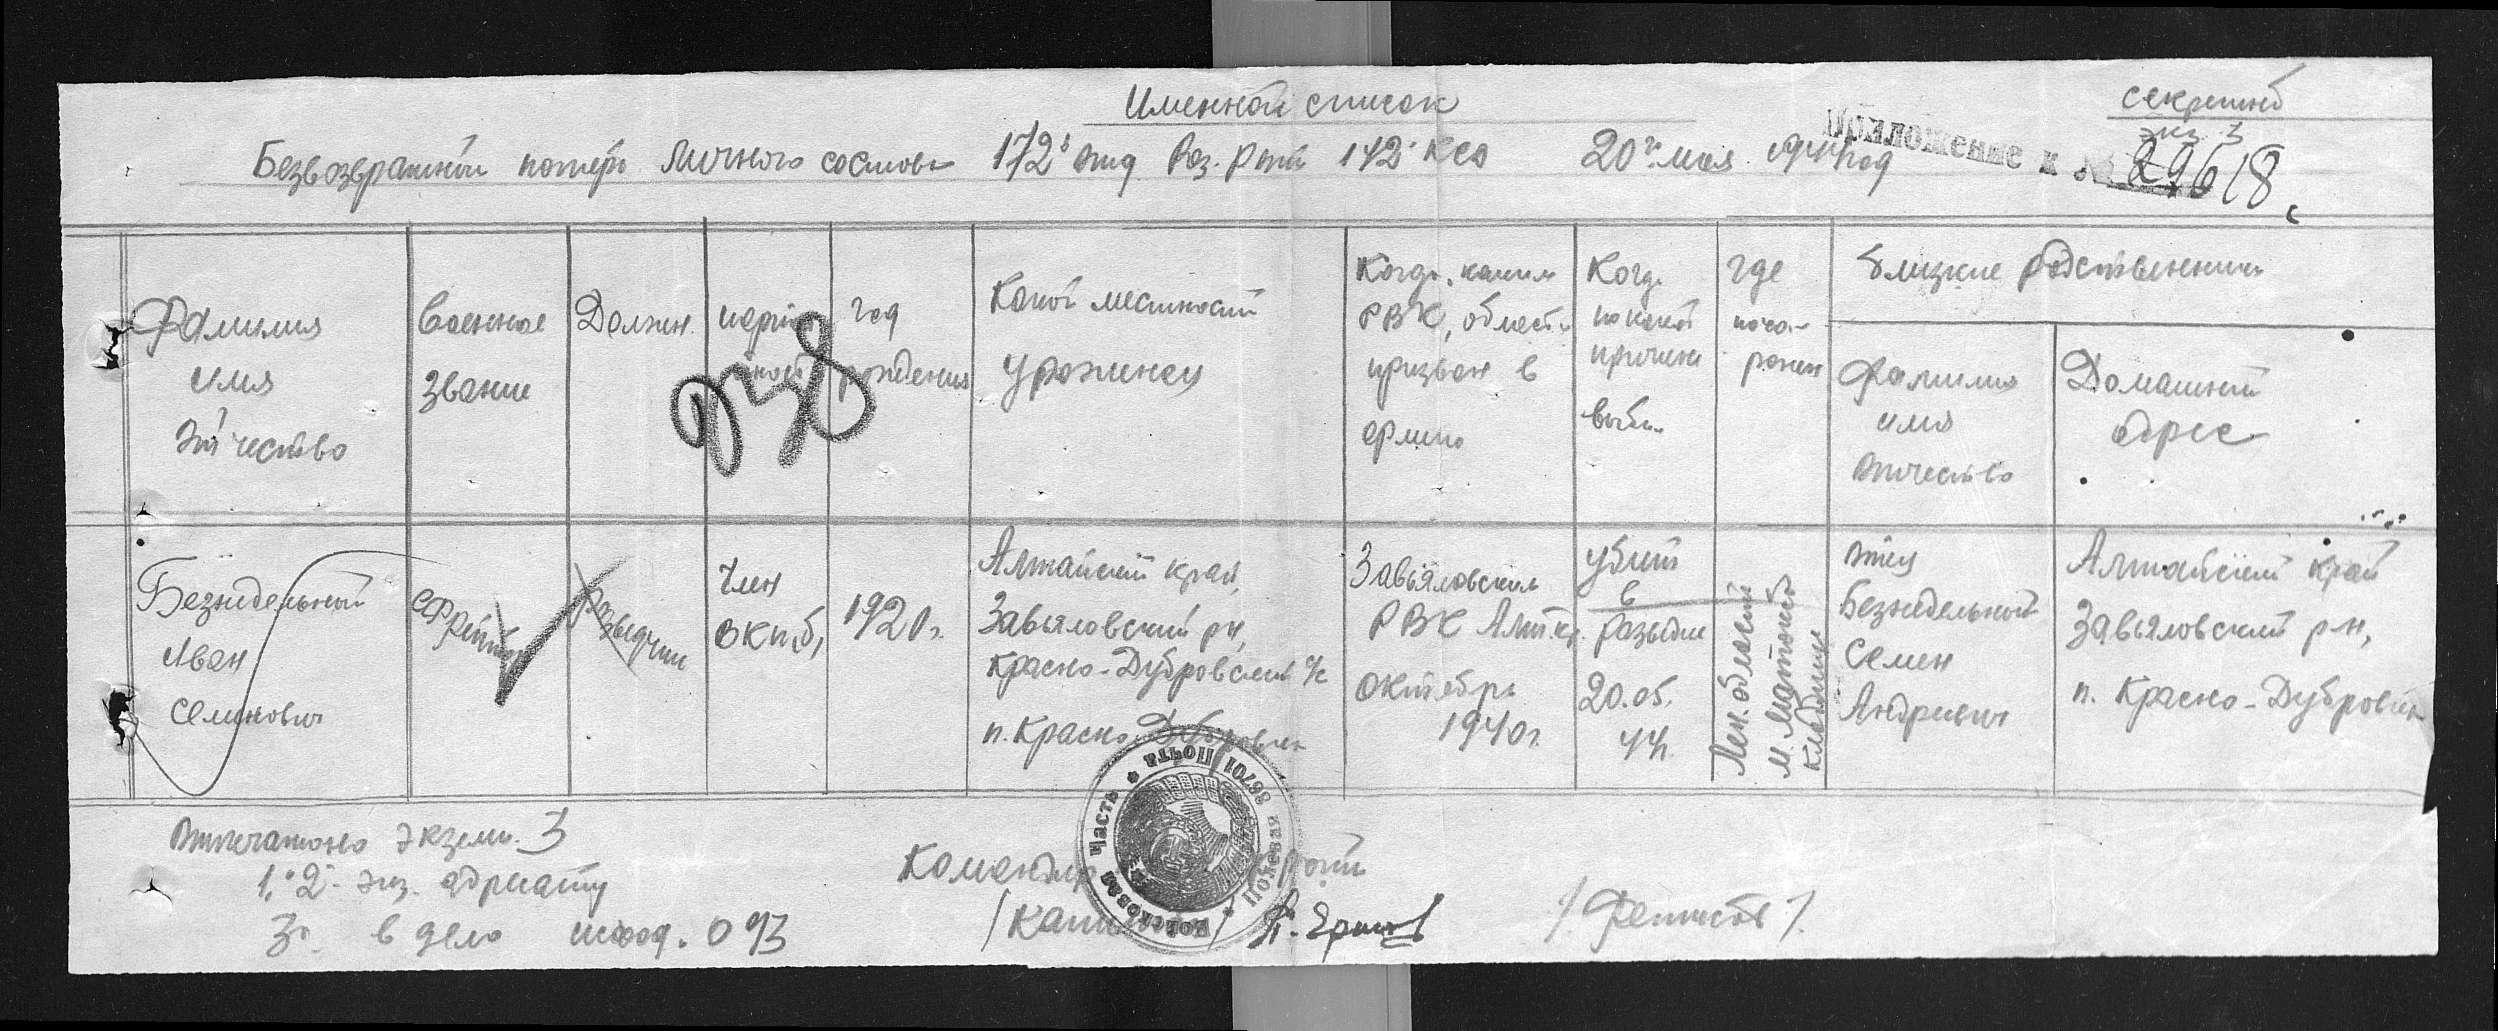 Именной список
секретно
экз 3
Приложение к № 29618с
Безвозвратной потерь личного состава 172й отд раз. роты 142й КСД 20го мая
Фамилия
имя
отчество
Военное
звание
Должн.
парт
938
год
рождения
Какой местности
уроженец
Когда, каким
РВК, области
призван в
армию
Когда
по какой
причине
выбыл
где
похо-
ронен
Близкие родственники
Фамилия
имя
отчество
Домашний
адрес
Безнедельный
Иван
Семенович
ефрейтор
разведчик
Член
ВКП(б)
1920 г.
Алтайский край,
Завьяловский рн,
Красно-Дубровский с/с
п. Красно-Дубровск
Завьяловским
РВК Алт.кр.
октябрь
1940 г.
убит
в
разведке
20.05.
44г.
Лен. область
кладбище
отец
Безнедельный
Семен
Андреевич
Алтайский край
Завьяловский р-н,
п. Красно-Дубровск
Отпечатано экземп. 3
1. 2 - экз. адресату
3й в дело исход. 093
Командир роты
/капитан/
Войсковая часть * Полевая Почта 86701 *